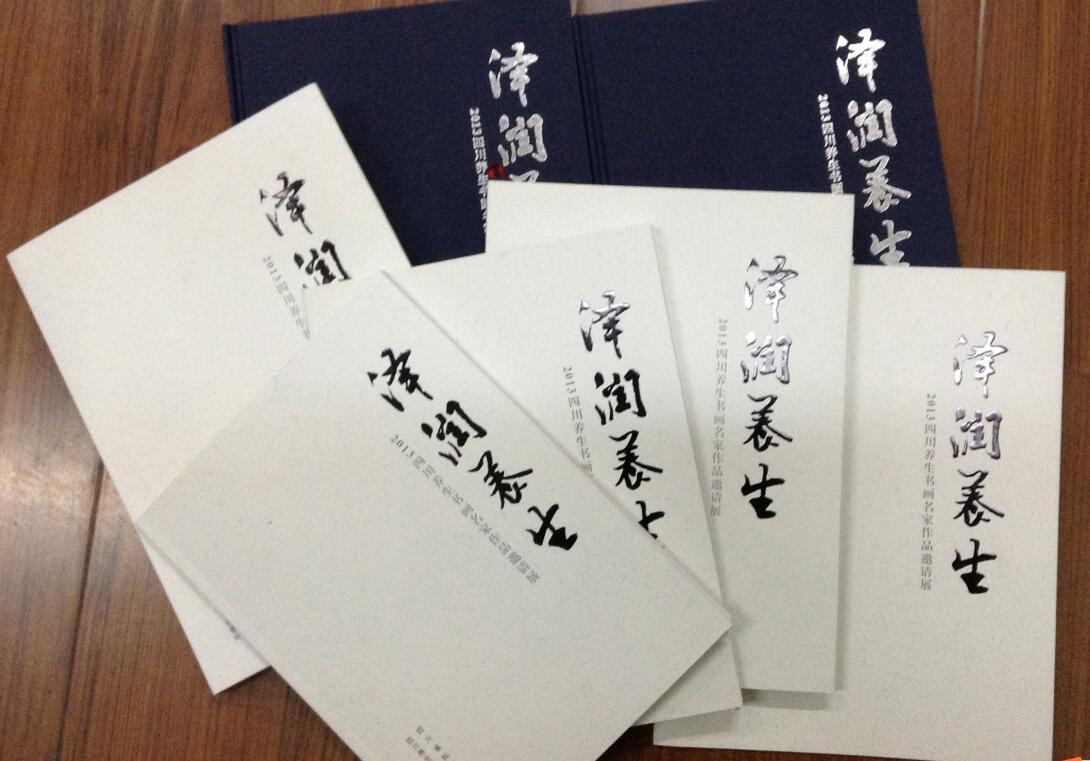 泽润
2013四川养生书画
泽润养生
2013四川养生书画
泽润
2013四川养生
泽润养生
2013四川养生书画名家作品邀请展
泽润养
2013四川养生书画
泽润养生
2013四川养生书画名家作品邀请展
泽润养生
2013四川养生书画名家作品邀请展